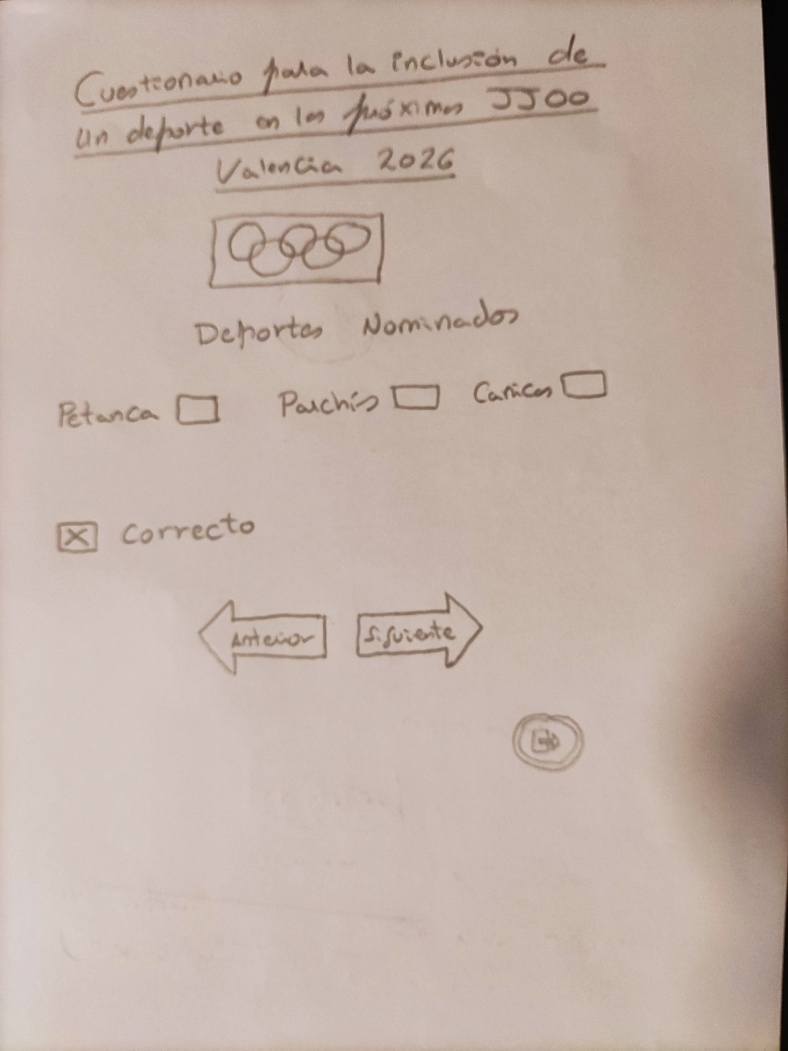 Cuestionario para la inclusión de
un deporte en los próximos JJOO
Valencia 2026
Deportes Nominados
Petanca Parchís Canicas
X Correcto
Anterior Siguiente